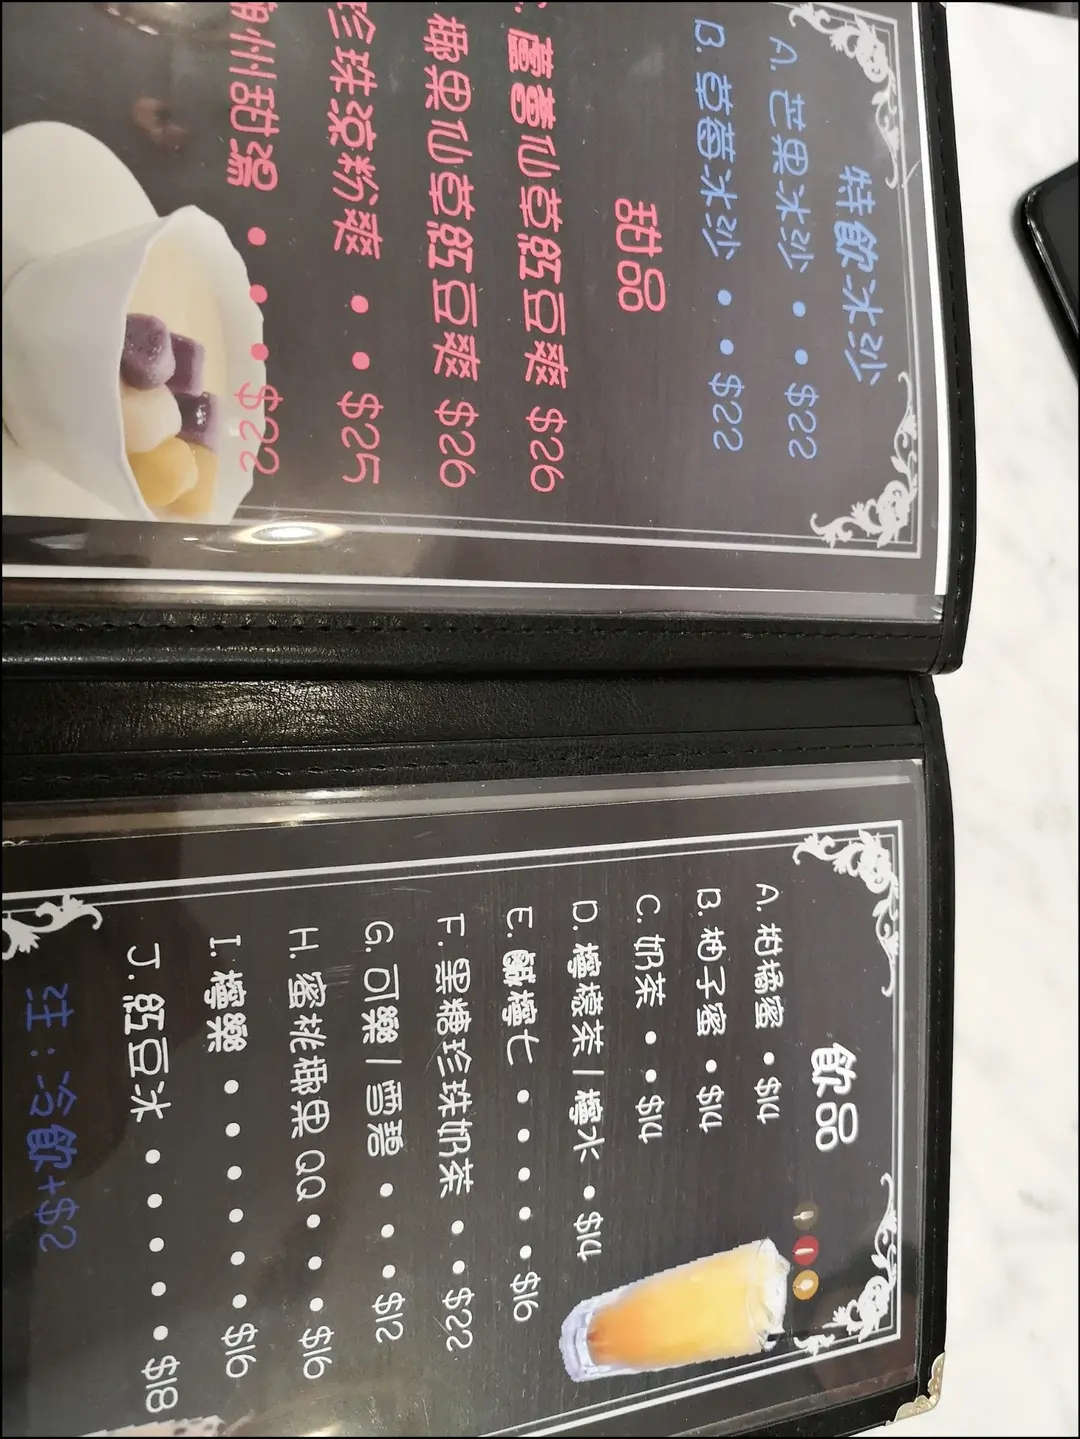 特飲冰沙
A. 芒果冰沙 • • $22
B. 草莓冰沙 • • $22
甜品
蘆薈仙草紅豆爽 $26
椰果仙草紅豆爽 $26
珍珠涼粉爽 • • $25
潮州甜湯 • • • $22
飲品
A. 柑橘蜜 • $14
B. 柚子蜜 • $14
C. 奶茶 • • $14
D. 檸檬茶 / 檸水 • $14
E. 鹹檸七 • • • • • $16
F. 黑糖珍珠奶茶 • • $22
G. 可樂 / 雪碧 • • • $12
H. 蜜桃椰果QQ • • • $16
I. 檸樂 • • • • • • $16
J. 紅豆冰 • • • • • $18
注：冷飲+$2